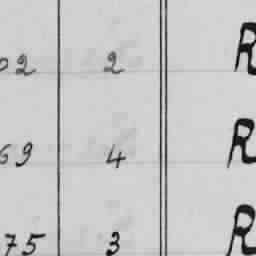 02 2 R
69 4 R
75 3 R